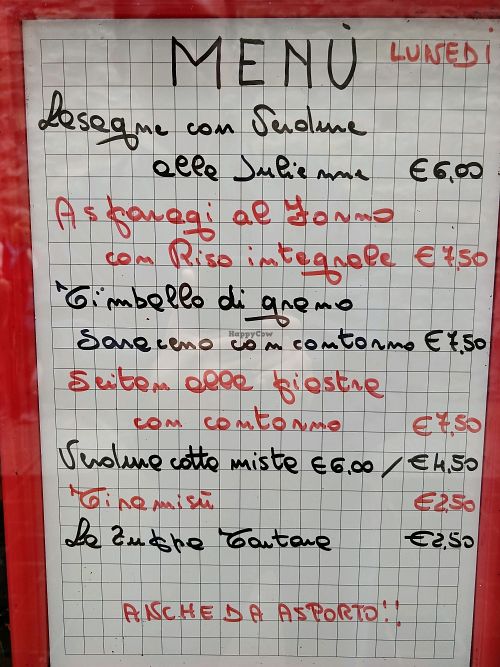 MENÙ LUNEDI
Lasagne con Verdure
alla Julienne €6,00
Asparagi al Forno
con Riso integrale €7,50
Timballo di grano
Saraceno con contorno €7,50
Seitan alla piastra
con contorno €7,50
Verdure cotte miste €6,00 / €4,50
Tiramisù €2,50
La Zuppa Tartara €2,50
ANCHE DA ASPORTO!!
HappyCow